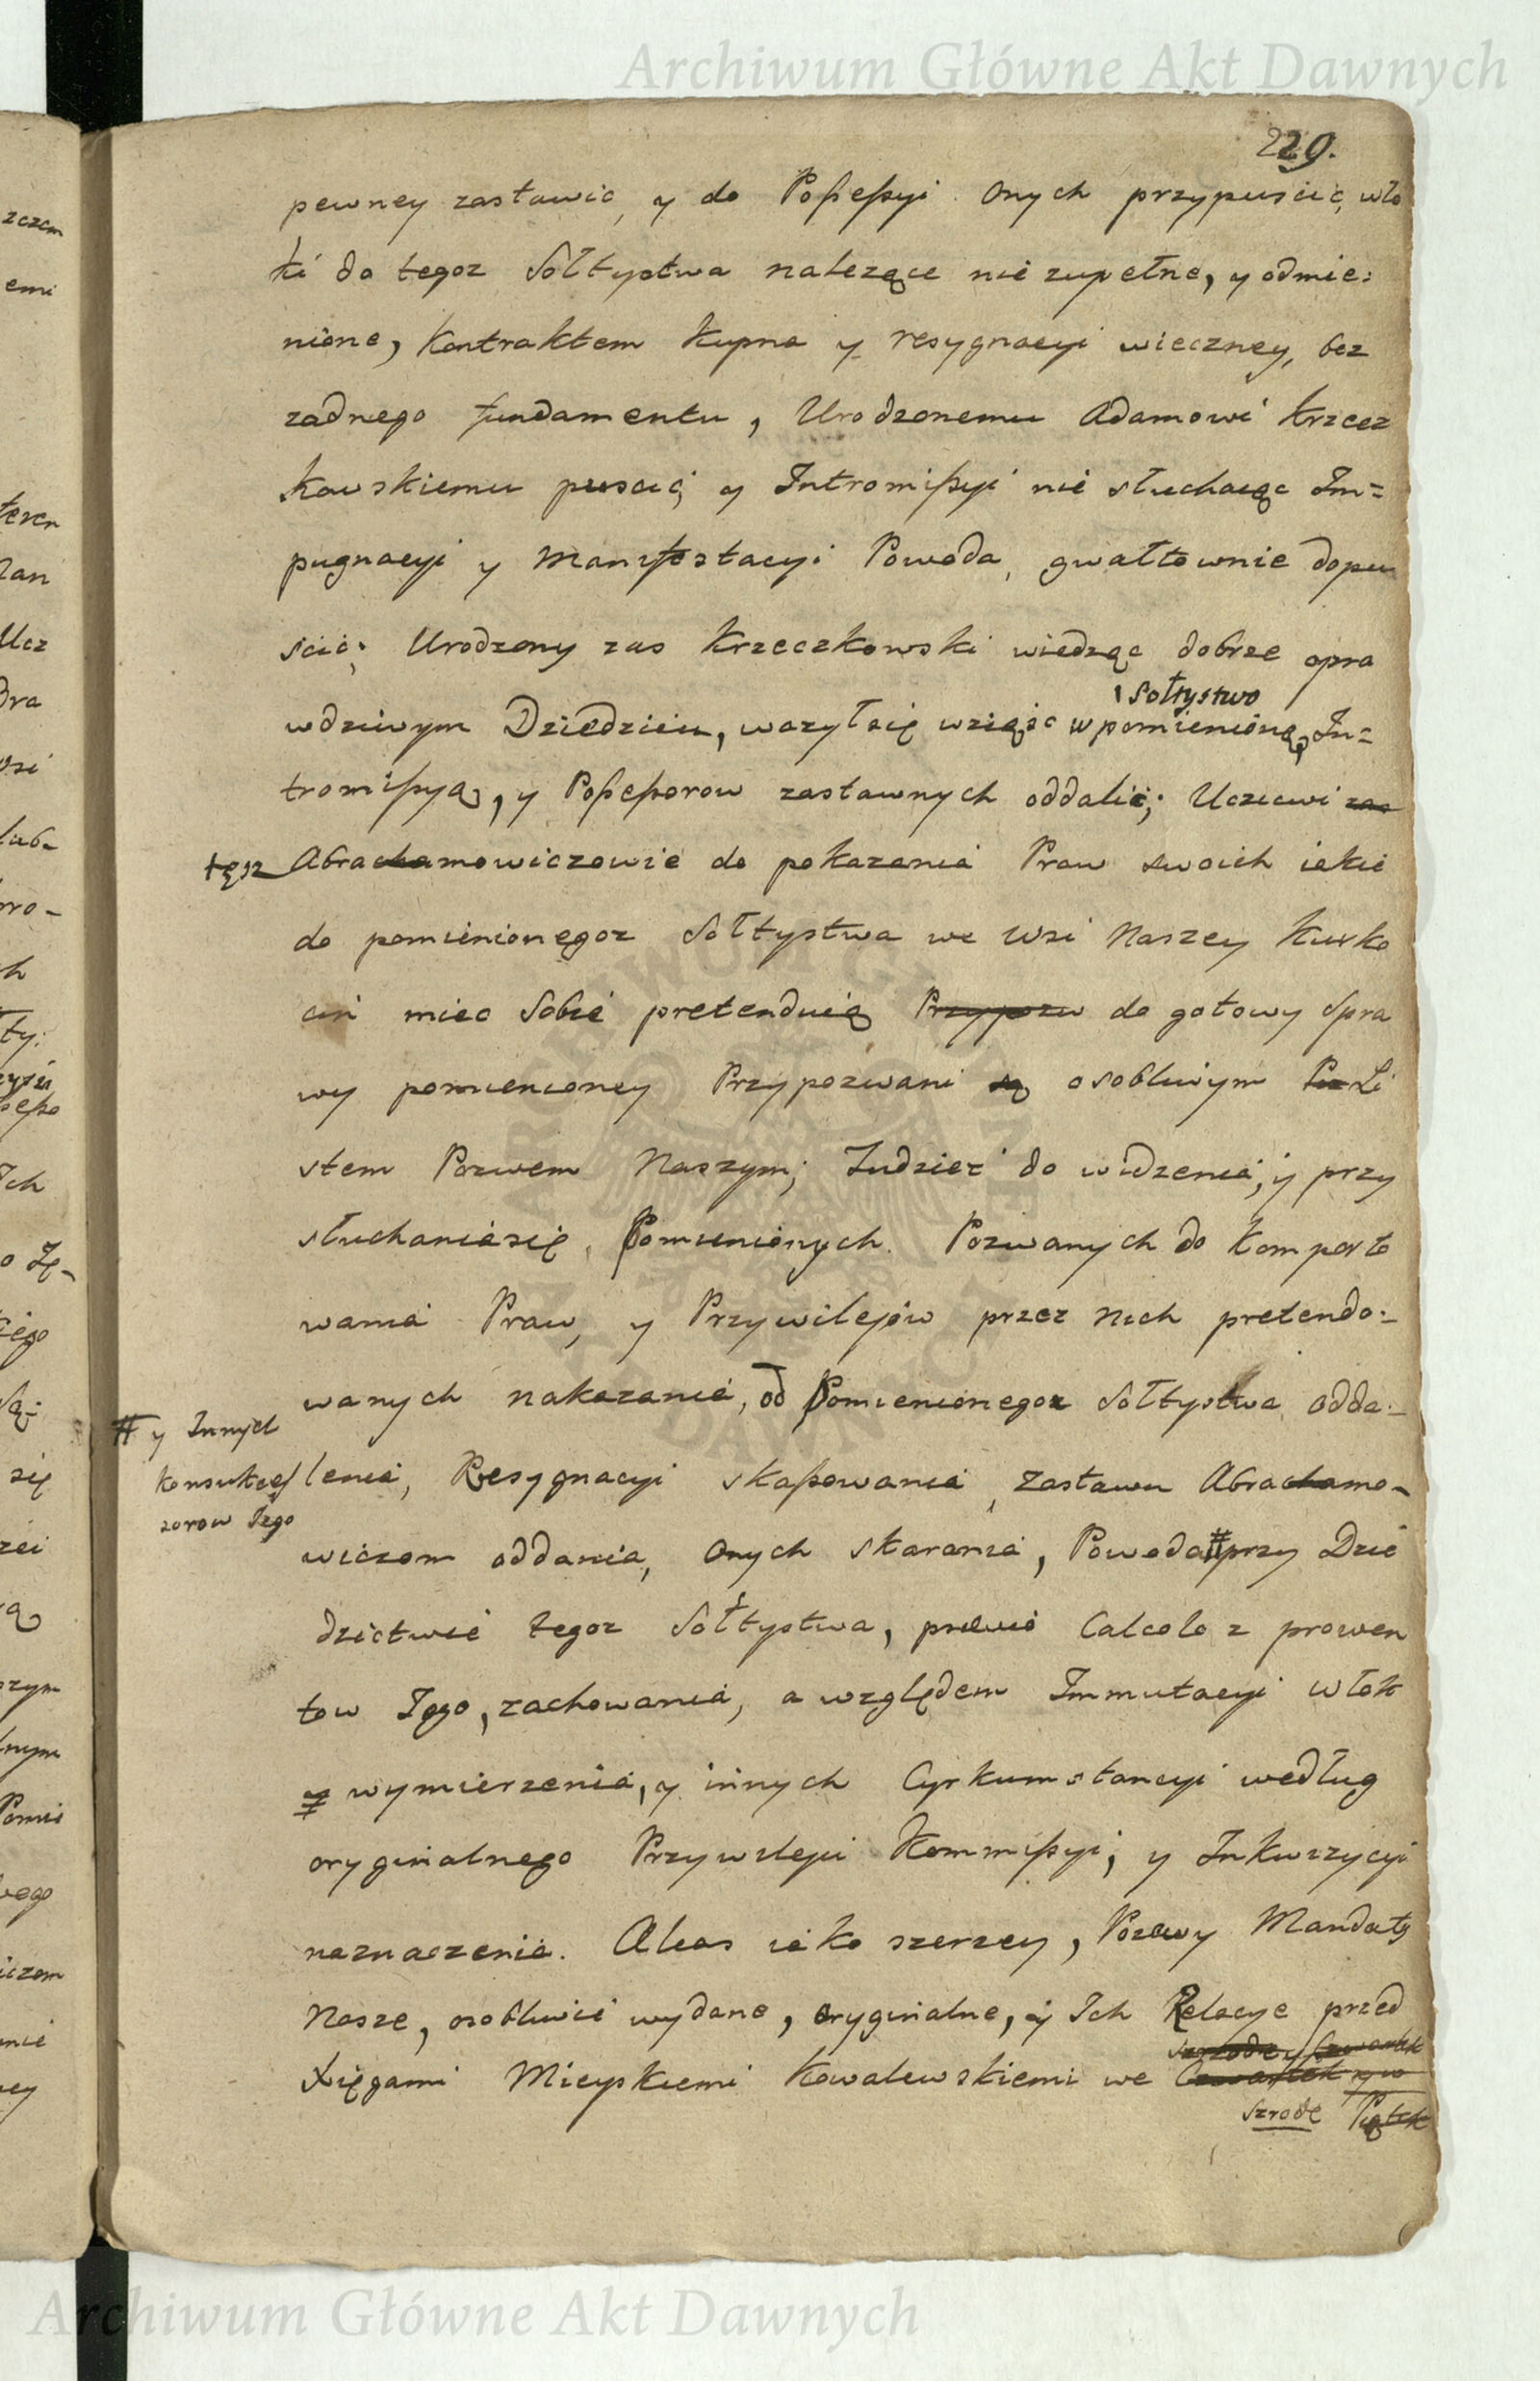 Archiwum Główne Akt Dawnych
229.
pewney zastawić, y do Possessyi Onych przypuscić, wło
ki do tegoz Sołtystwa nalezące nie zupełne, y odmie:
nione, Kontraktem Kupna y resygnacyi wieczney, bez
zadnego fundamentu, Urodzonemu Adamowi Krzecz
kowskiemu puscić, y Intromissyi nie słuchaiąc Im=
pugnacyi y Manifestacyi Powoda, gwałtownie dopu
scić; Urodzony zas Krzeczkowski wiedząc dobrze opra
Sołtystwo
wdziwym Dziedzicu, wazył się wziąsc w pomienioną In=
tromissyą, y Possessorow zastawnych oddalić; Uczciwi zas
tęsz Abrachamowiczowie do pokazania Praw swoich iakie
do pomienionegoz Sołtystwa we Wsi Naszey Kurko
cin miec Sobie pretenduią Przypozw do gotowy Spra
wy pomienioney Przypozwani są osobliwym Po Li
stem Pozwem Naszym; Tudziez do widzenia, y przy
słuchania się, Pomienionych Pozwanych do Komporto
wania Praw, y Przywilejów przez Nich pretendo:
wanych nakazania, od Pomienionegoz Sołtystwa odda:
# y Innych
Konsukces
sorow Jego
lenia, Resygnacyi skassowania, Zastawu Abrachamo-
wiczom oddania, Onych skarania, Powoda # przy Dzie
dzictwie tegoz Sołtystwa, prævio Calculo z prowen
tow Jego, zachowania, a względem Immutacyi Włok
y wymierzenia, y innych Cyrkumstancyi według
oryginalnego Przywileju Kommissyi, y Inkwizycyi
naznaczenia. Aleas iako szerzey, Pozwy Mandaty
Nasze, osobliwie wydane, oryginalne, y Ich Relacye przed
Xięgami Mieyskiemi Kowalewskiemi we Czwartek y w
Szrodę y Czwartek
Szrodę Piątek
Archiwum Główne Akt Dawnych